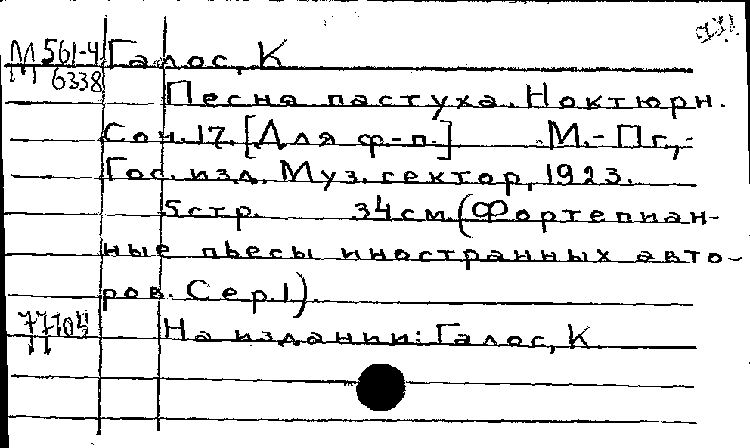 М 561-4 Галос, К
6338
Песня пастуха. Ноктюрн.
Соч. 17. [Для ф-п.] М.-Пг.,-
Гос. изд. Муз. сектор, 1923.
5 стр. 34 см. (Фортепиан-
ные пьесы иностранных авто-
ров. Сер. 1)
На издании: Галос, К.